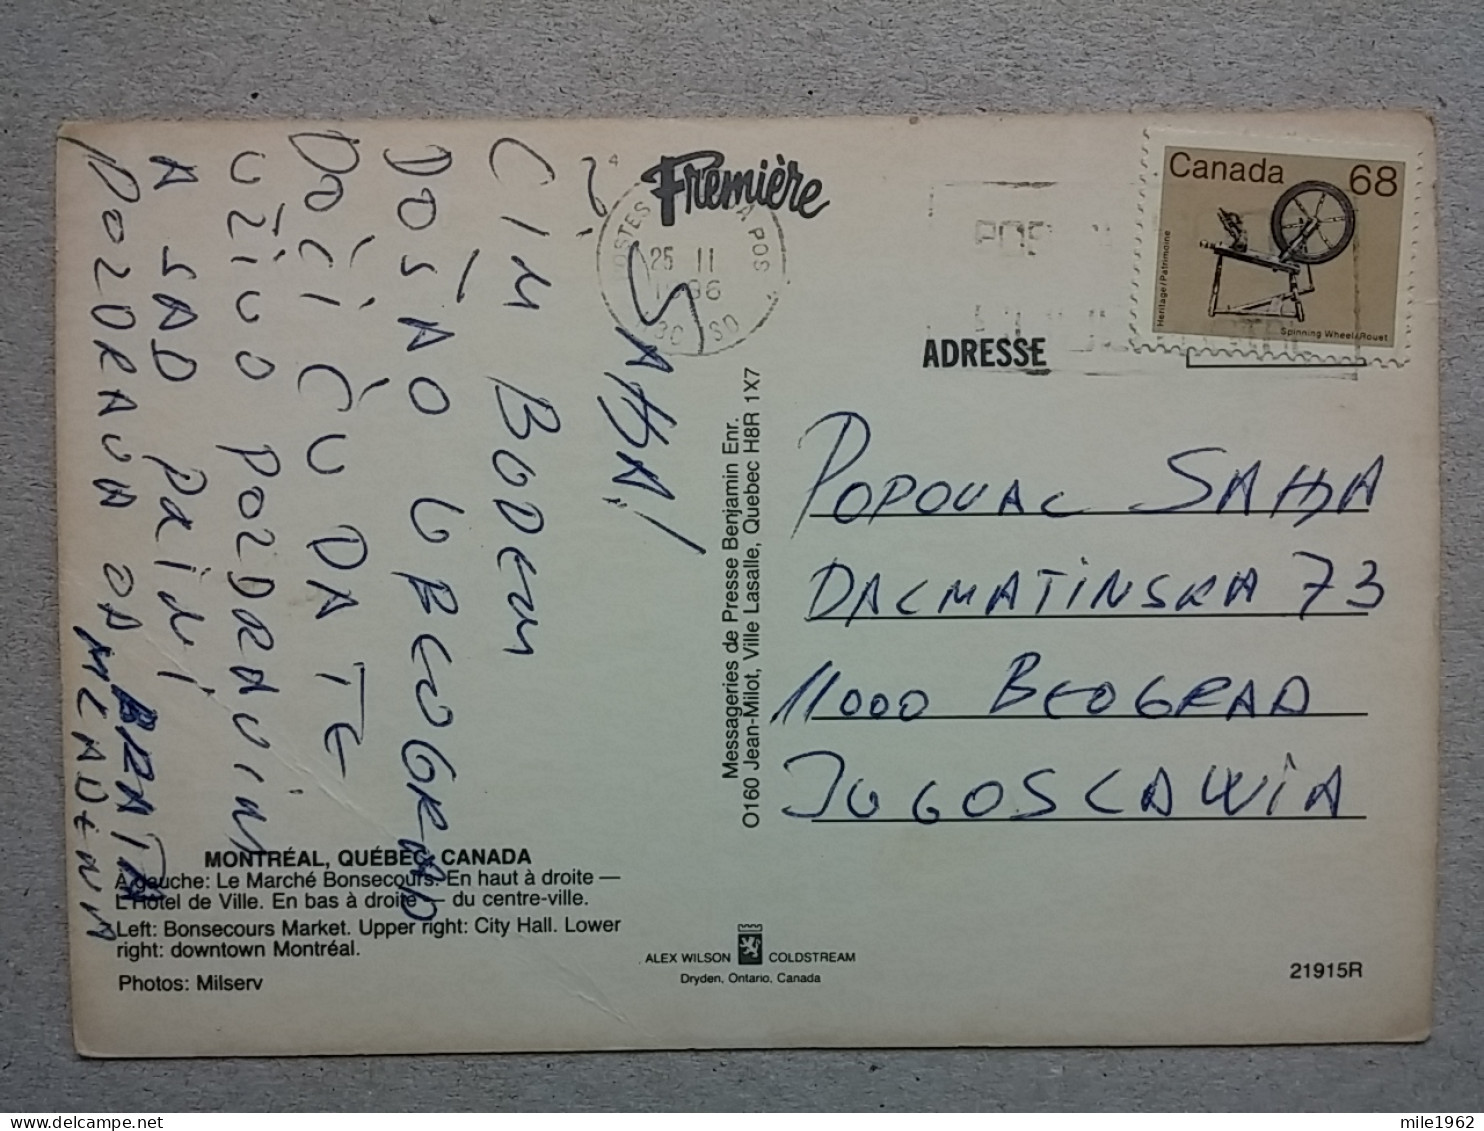 SANJA!
ČIM BUDEM
DOŠAO U BEOGRAD
DOĆI ĆU DA TE
UŽIVO POZDRAVIM
A SAD PRIMI
POZDRAVA OD BRATA
MLADENA
Première
25 II
Canada 68
Heritage/Patrimoine
Spinning Wheel/Rouet
ADRESSE
POPOVAC SANJA
DALMATINSKA 73
11000 BEOGRAD
JUGOSLAVIJA
Messageries de Presse Benjamin Enr.
O160 Jean-Milot, Ville Lasalle, Quebec H8R 1X7
MONTRÉAL, QUÉBEC, CANADA
A gauche: Le Marché Bonsecours. En haut à droite —
L'Hôtel de Ville. En bas à droite — du centre-ville.
Left: Bonsecours Market. Upper right: City Hall. Lower
right: downtown Montréal.
Photos: Milserv
ALEX WILSON COLDSTREAM
Dryden, Ontario, Canada
21915R
mile1962